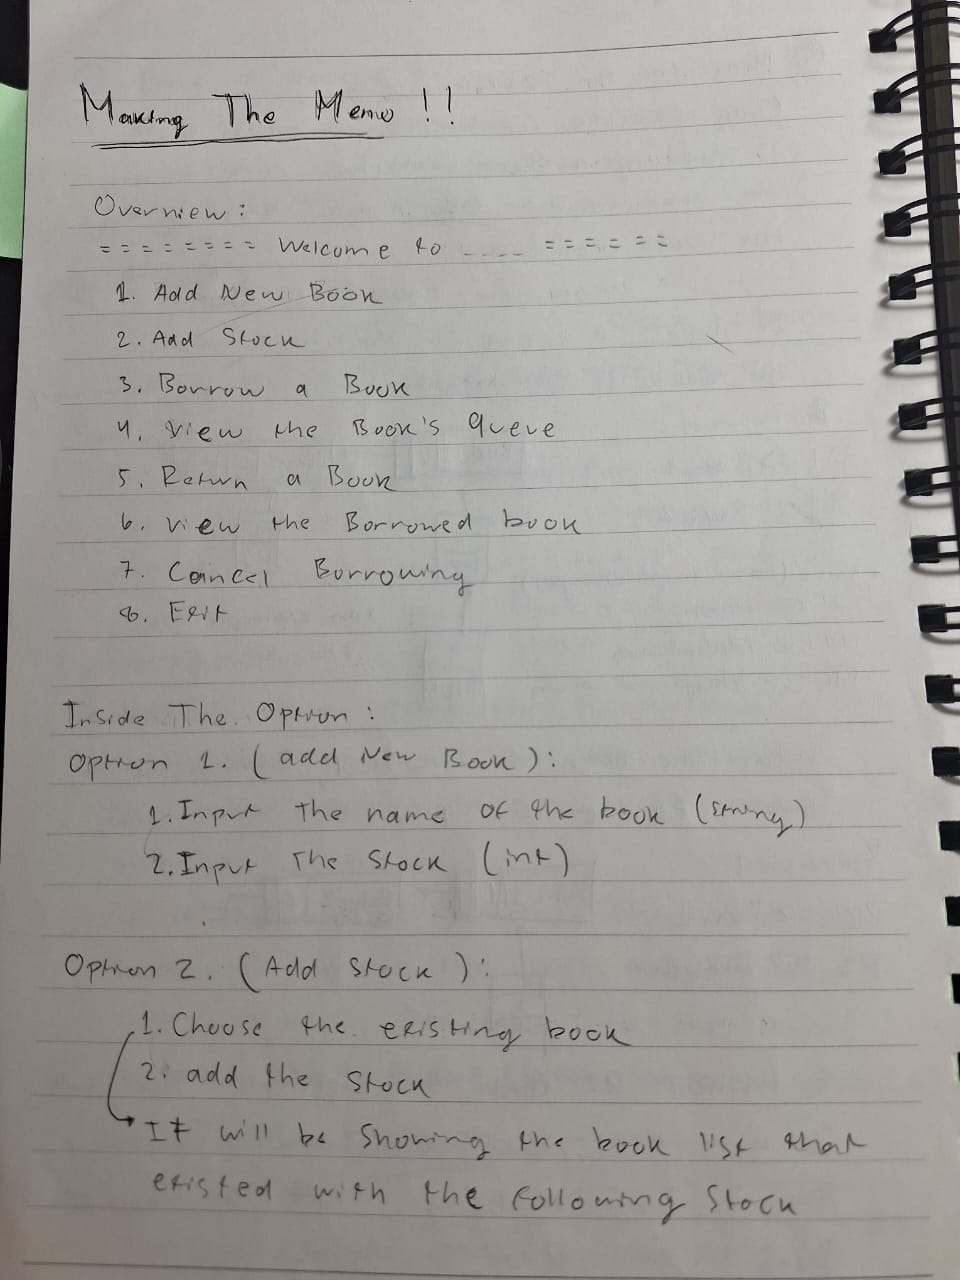 Making The Memo !!
Overview :
= = = = = = = = Welcome to ---- = = = = = =
1. Add New Book
2. Add Stock
3. Borrow a Book
4. View the Book's queue
5. Return a Book
6. View the Borrowed book
7. Cancel Borrowing
8. Exit
Inside The Option :
Option 1. ( add New Book ) :
1. Input the name of the book (string)
2. Input the Stock (int)
Option 2. ( Add Stock ) :
1. Choose the existing book
2. add the Stock
It will be showing the book list that
existed with the following Stock